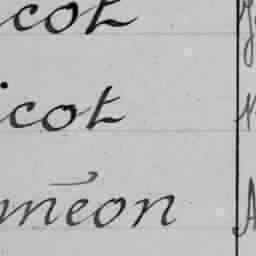 icot
icot
méon